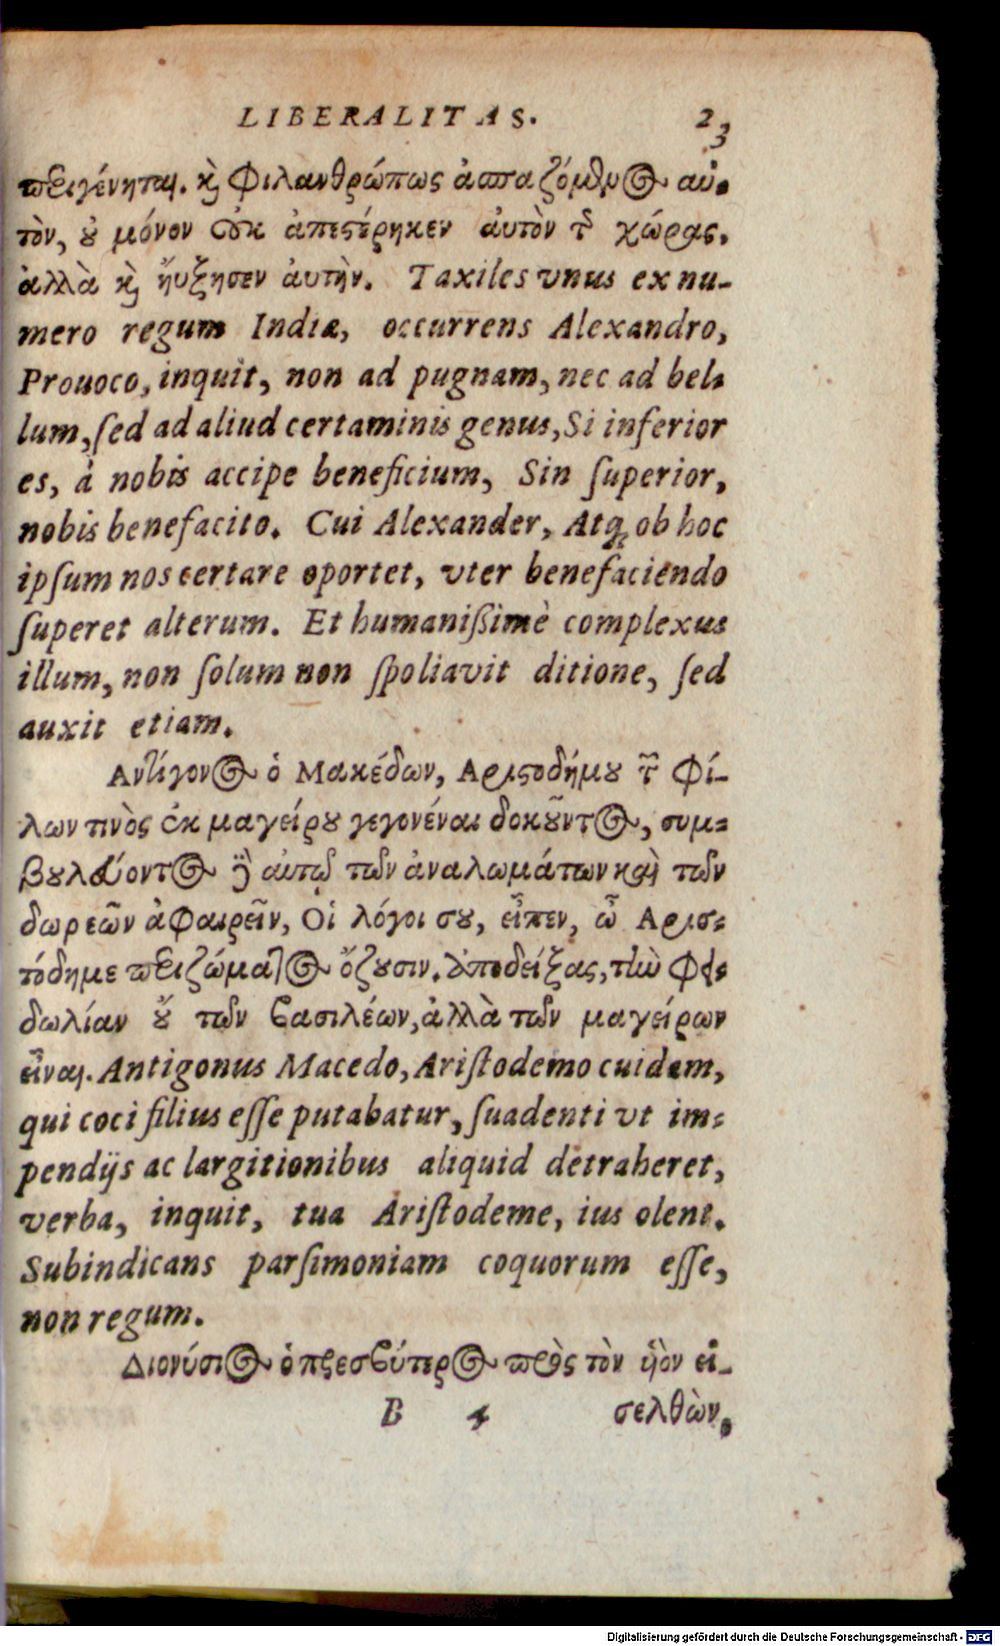 LIBERALITAS. 23
περιγένηται. καὶ φιλανθρώπως ἀσπαζόμενος αὐ-
τὸν, οὐ μόνον οὐκ ἀπεστέρηκεν αὐτὸν τῆς χώρας,
ἀλλὰ καὶ ἤυξησεν ἀυτὴν. Taxiles vnus ex nu-
mero regum Indiæ, occurrens Alexandro,
Prouoco, inquit, non ad pugnam, nec ad bel-
lum, ſed ad aliud certaminis genus, Si inferior
es, à nobis accipe beneficium, Sin ſuperior,
nobis benefacito. Cui Alexander, Atq; ob hoc
ipſum nos certare oportet, vter benefaciendo
ſuperet alterum. Et humaniſſimè complexus
illum, non ſolum non ſpoliavit ditione, ſed
auxit etiam.
Αντίγονος ὁ Μακέδων, Αριστοδήμου τῶν φί-
λων τινὸς ἐκ μαγείρου γεγονέναι δοκοῦντος, συμ-
βουλεύοντος δὲ αὐτῷ τῶν ἀναλωμάτων καὶ τῶν
δωρεῶν ἀφαιρεῖν, Οἱ λόγοι σου, εἶπεν, ὦ Αρισ-
τόδημε περιζώματος ὄζουσιν. ἀποδείξας, τὴν φει-
δωλίαν οὐ τῶν βασιλέων, ἀλλὰ τῶν μαγείρων
εἶναι. Antigonus Macedo, Ariſtodemo cuidam,
qui coci filius eſſe putabatur, ſuadenti vt im-
pendijs ac largitionibus aliquid detraheret,
verba, inquit, tua Ariſtodeme, ius olent.
Subindicans parſimoniam coquorum eſſe,
non regum.
Διονύσιος ὁ πρεσβύτερος πρὸς τὸν υἱὸν εἰ-
B 4 σελθὼν,
Digitalisierung gefördert durch die Deutsche Forschungsgemeinschaft - DFG